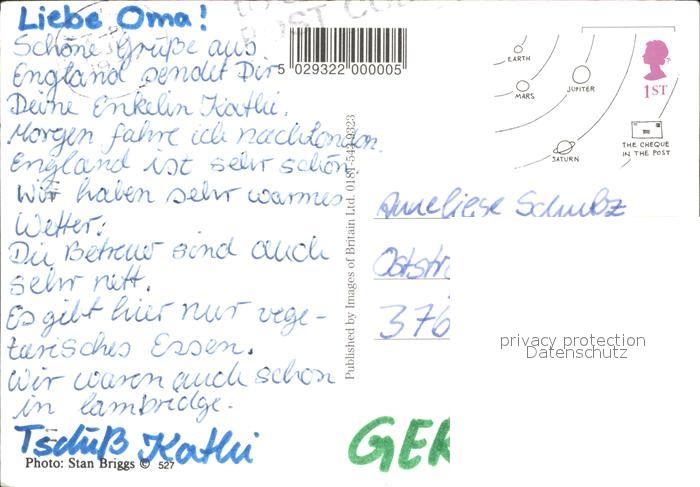 Liebe Oma!
Schöne Grüße aus
England sendet Dir
Deine Enkelin Kathi.
Morgen fahre ich nach London.
England ist sehr schön.
Wir haben sehr warmes
Wetter.
Die Betreuer sind auch
sehr nett.
Es gibt hier nur vege-
tarisches Essen.
Wir waren auch schon
in Cambridge.
Tschüß Kathi
Photo: Stan Briggs © 527
5 029322 000005
Published by Images of Britain Ltd.
EARTH
MARS
JUPITER
SATURN
1ST
THE CHEQUE
IN THE POST
Anneliese Schulz
Oststr
376
GER
privacy protection
Datenschutz